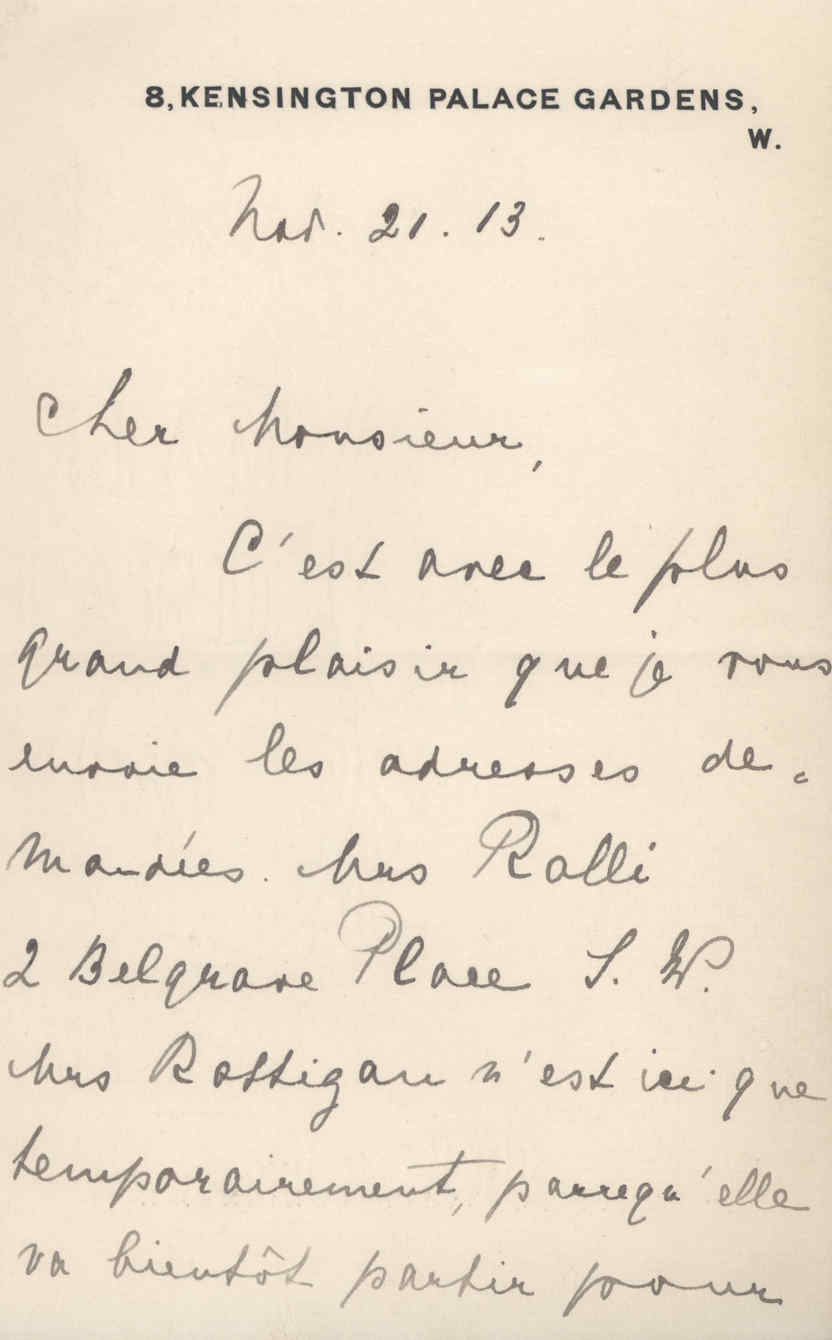 8, KENSINGTON PALACE GARDENS,
W.
Nov. 21. 13.
Cher Monsieur,
C'est avec le plus
grand plaisir que je vous
envoie les adresses de-
mandées. Mrs Ralli
2 Belgrave Place S. W.
Mrs Rattigan n'est ici que
temporairement, parcequ'elle
va bientôt partir pour